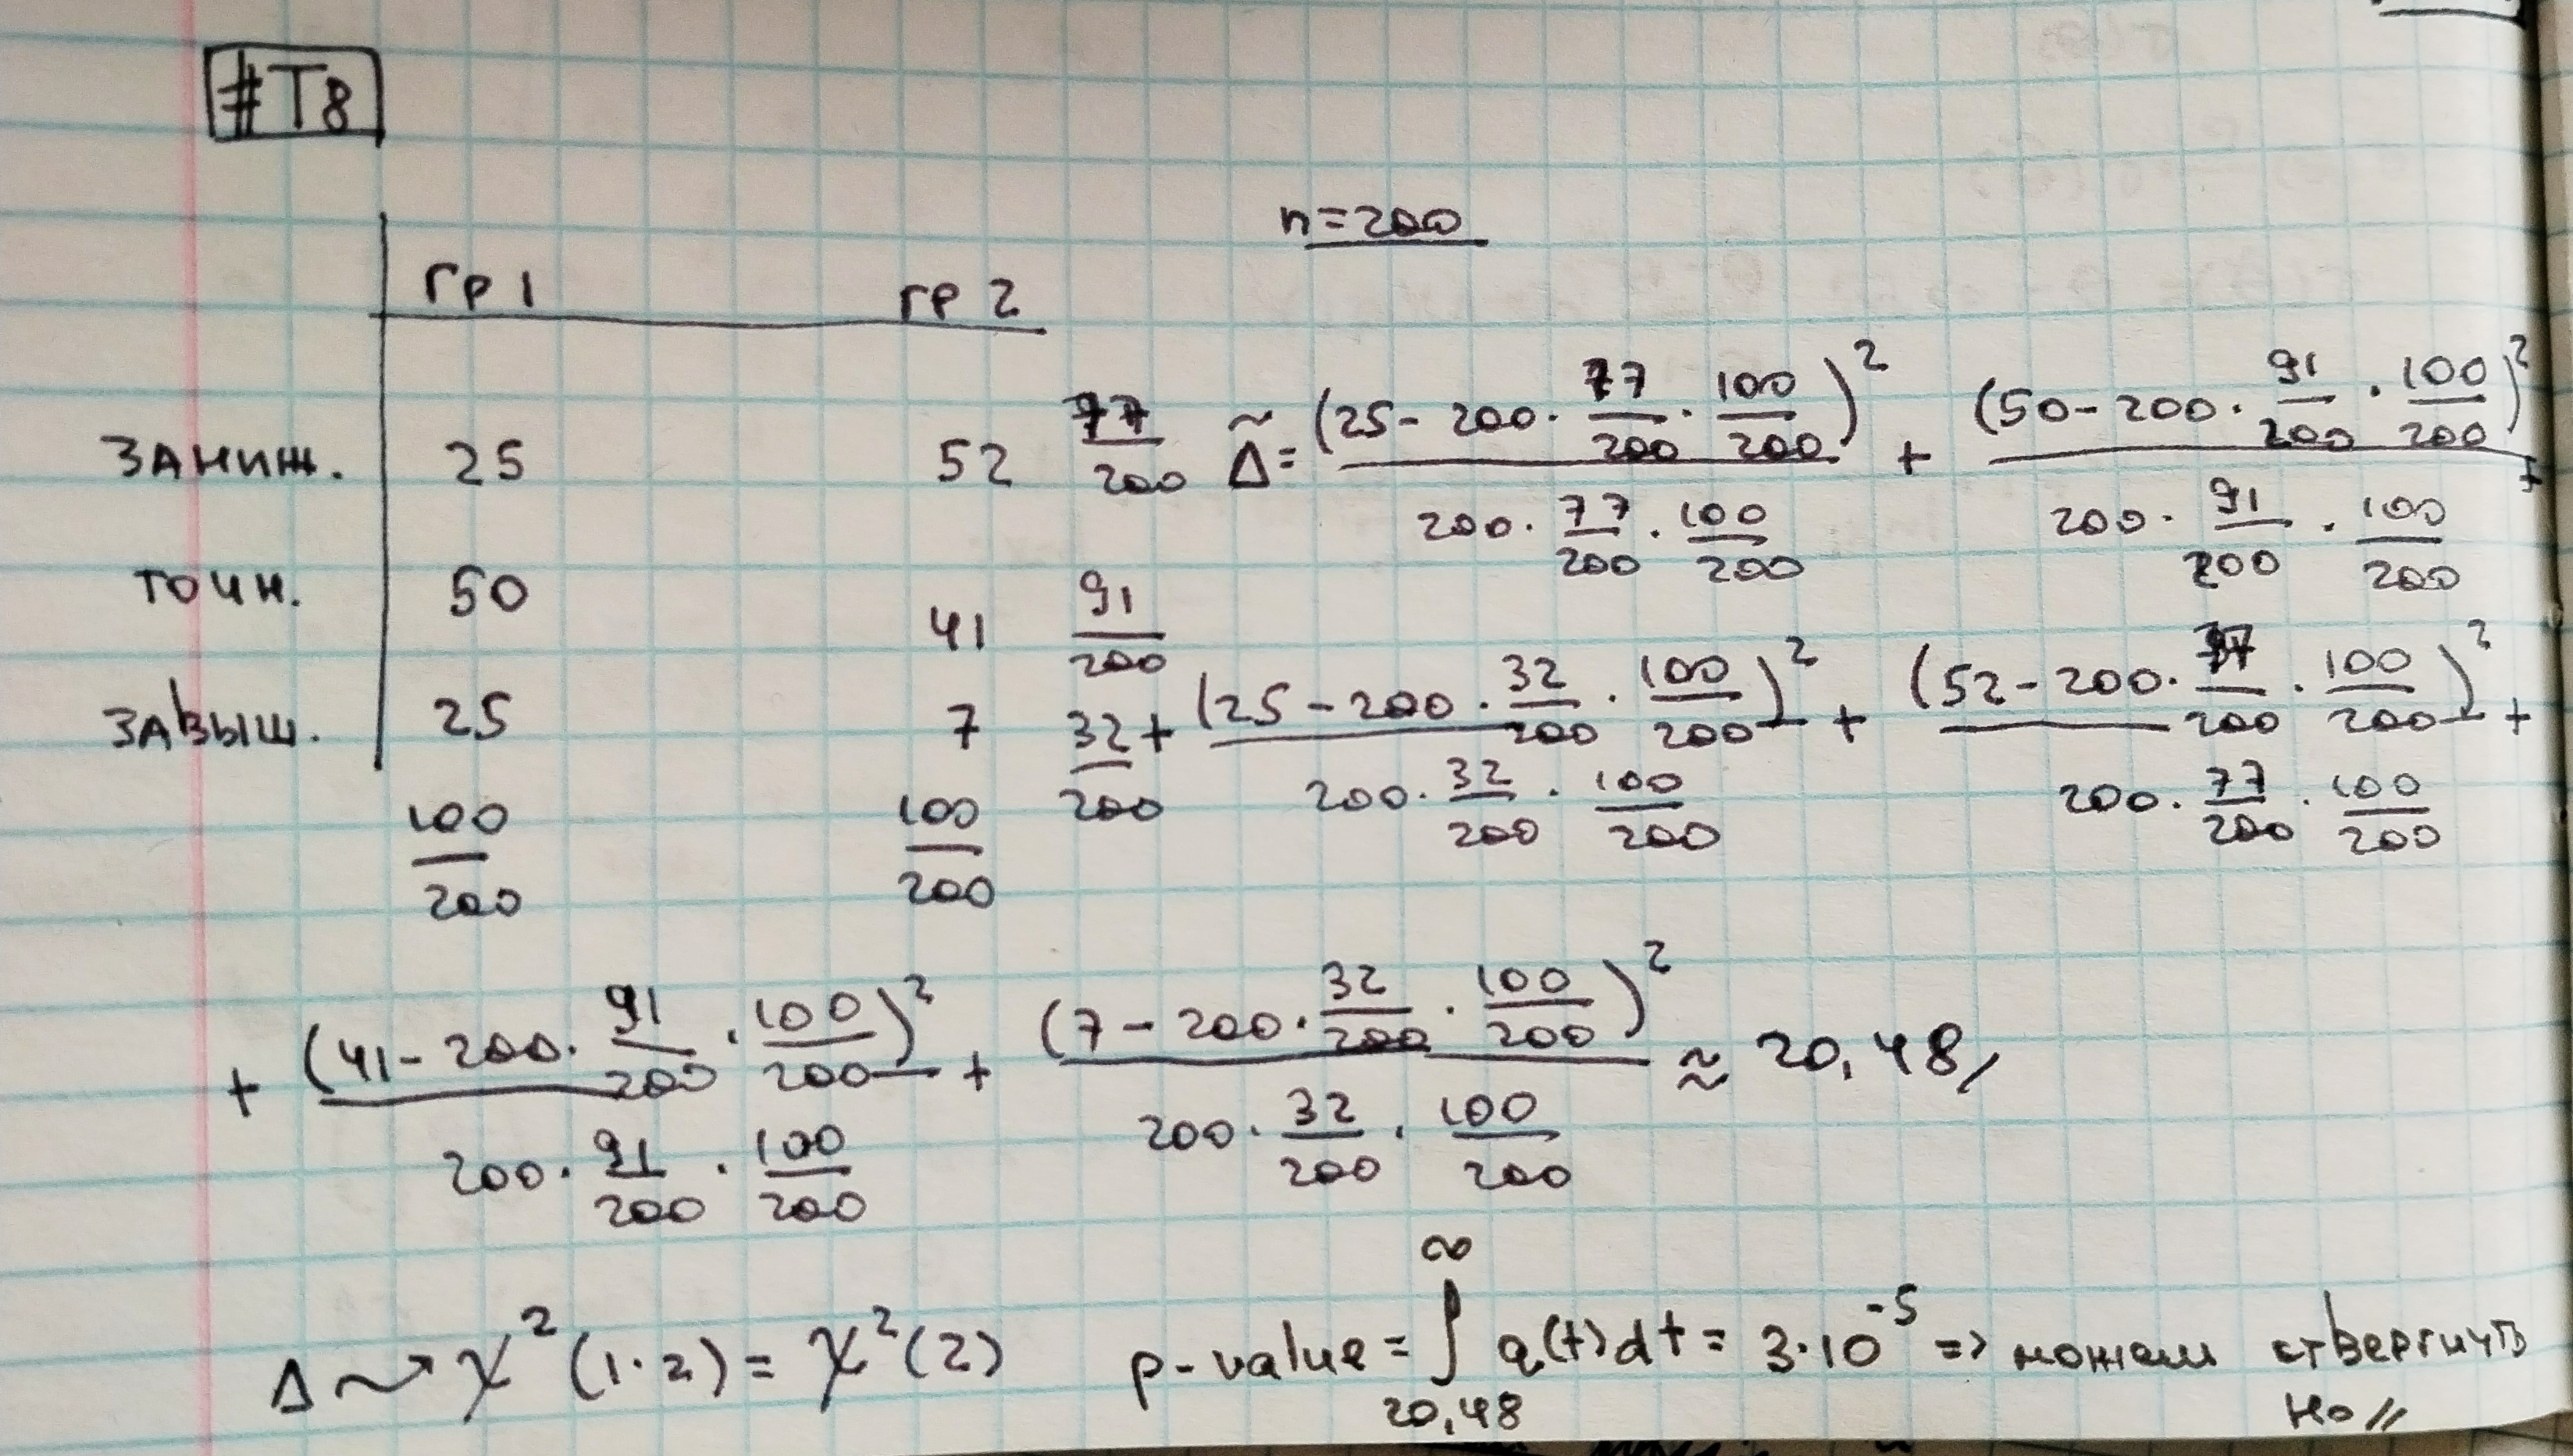 #T8
n=200
гр 1 гр 2
заниж. 25 52 77/200 Δ̃ = (25 - 200 · 77/200 · 100/200)² / (200 · 77/200 · 100/200) + (50 - 200 · 91/200 · 100/200)² / (200 · 91/200 · 100/200) +
точн. 50 41 91/200
завыш. 25 7 32/200 + (25 - 200 · 32/200 · 100/200)² / (200 · 32/200 · 100/200) + (52 - 200 · 77/200 · 100/200)² / (200 · 77/200 · 100/200) +
100/200 100/200
+ (41 - 200 · 91/200 · 100/200)² / (200 · 91/200 · 100/200) + (7 - 200 · 32/200 · 100/200)² / (200 · 32/200 · 100/200) ≈ 20,48,
Δ ⇝ χ²(1·2) = χ²(2) p-value = ∫_{20,48}^{∞} q(t)dt = 3·10⁻⁵ => можем отвергнуть
H₀ //